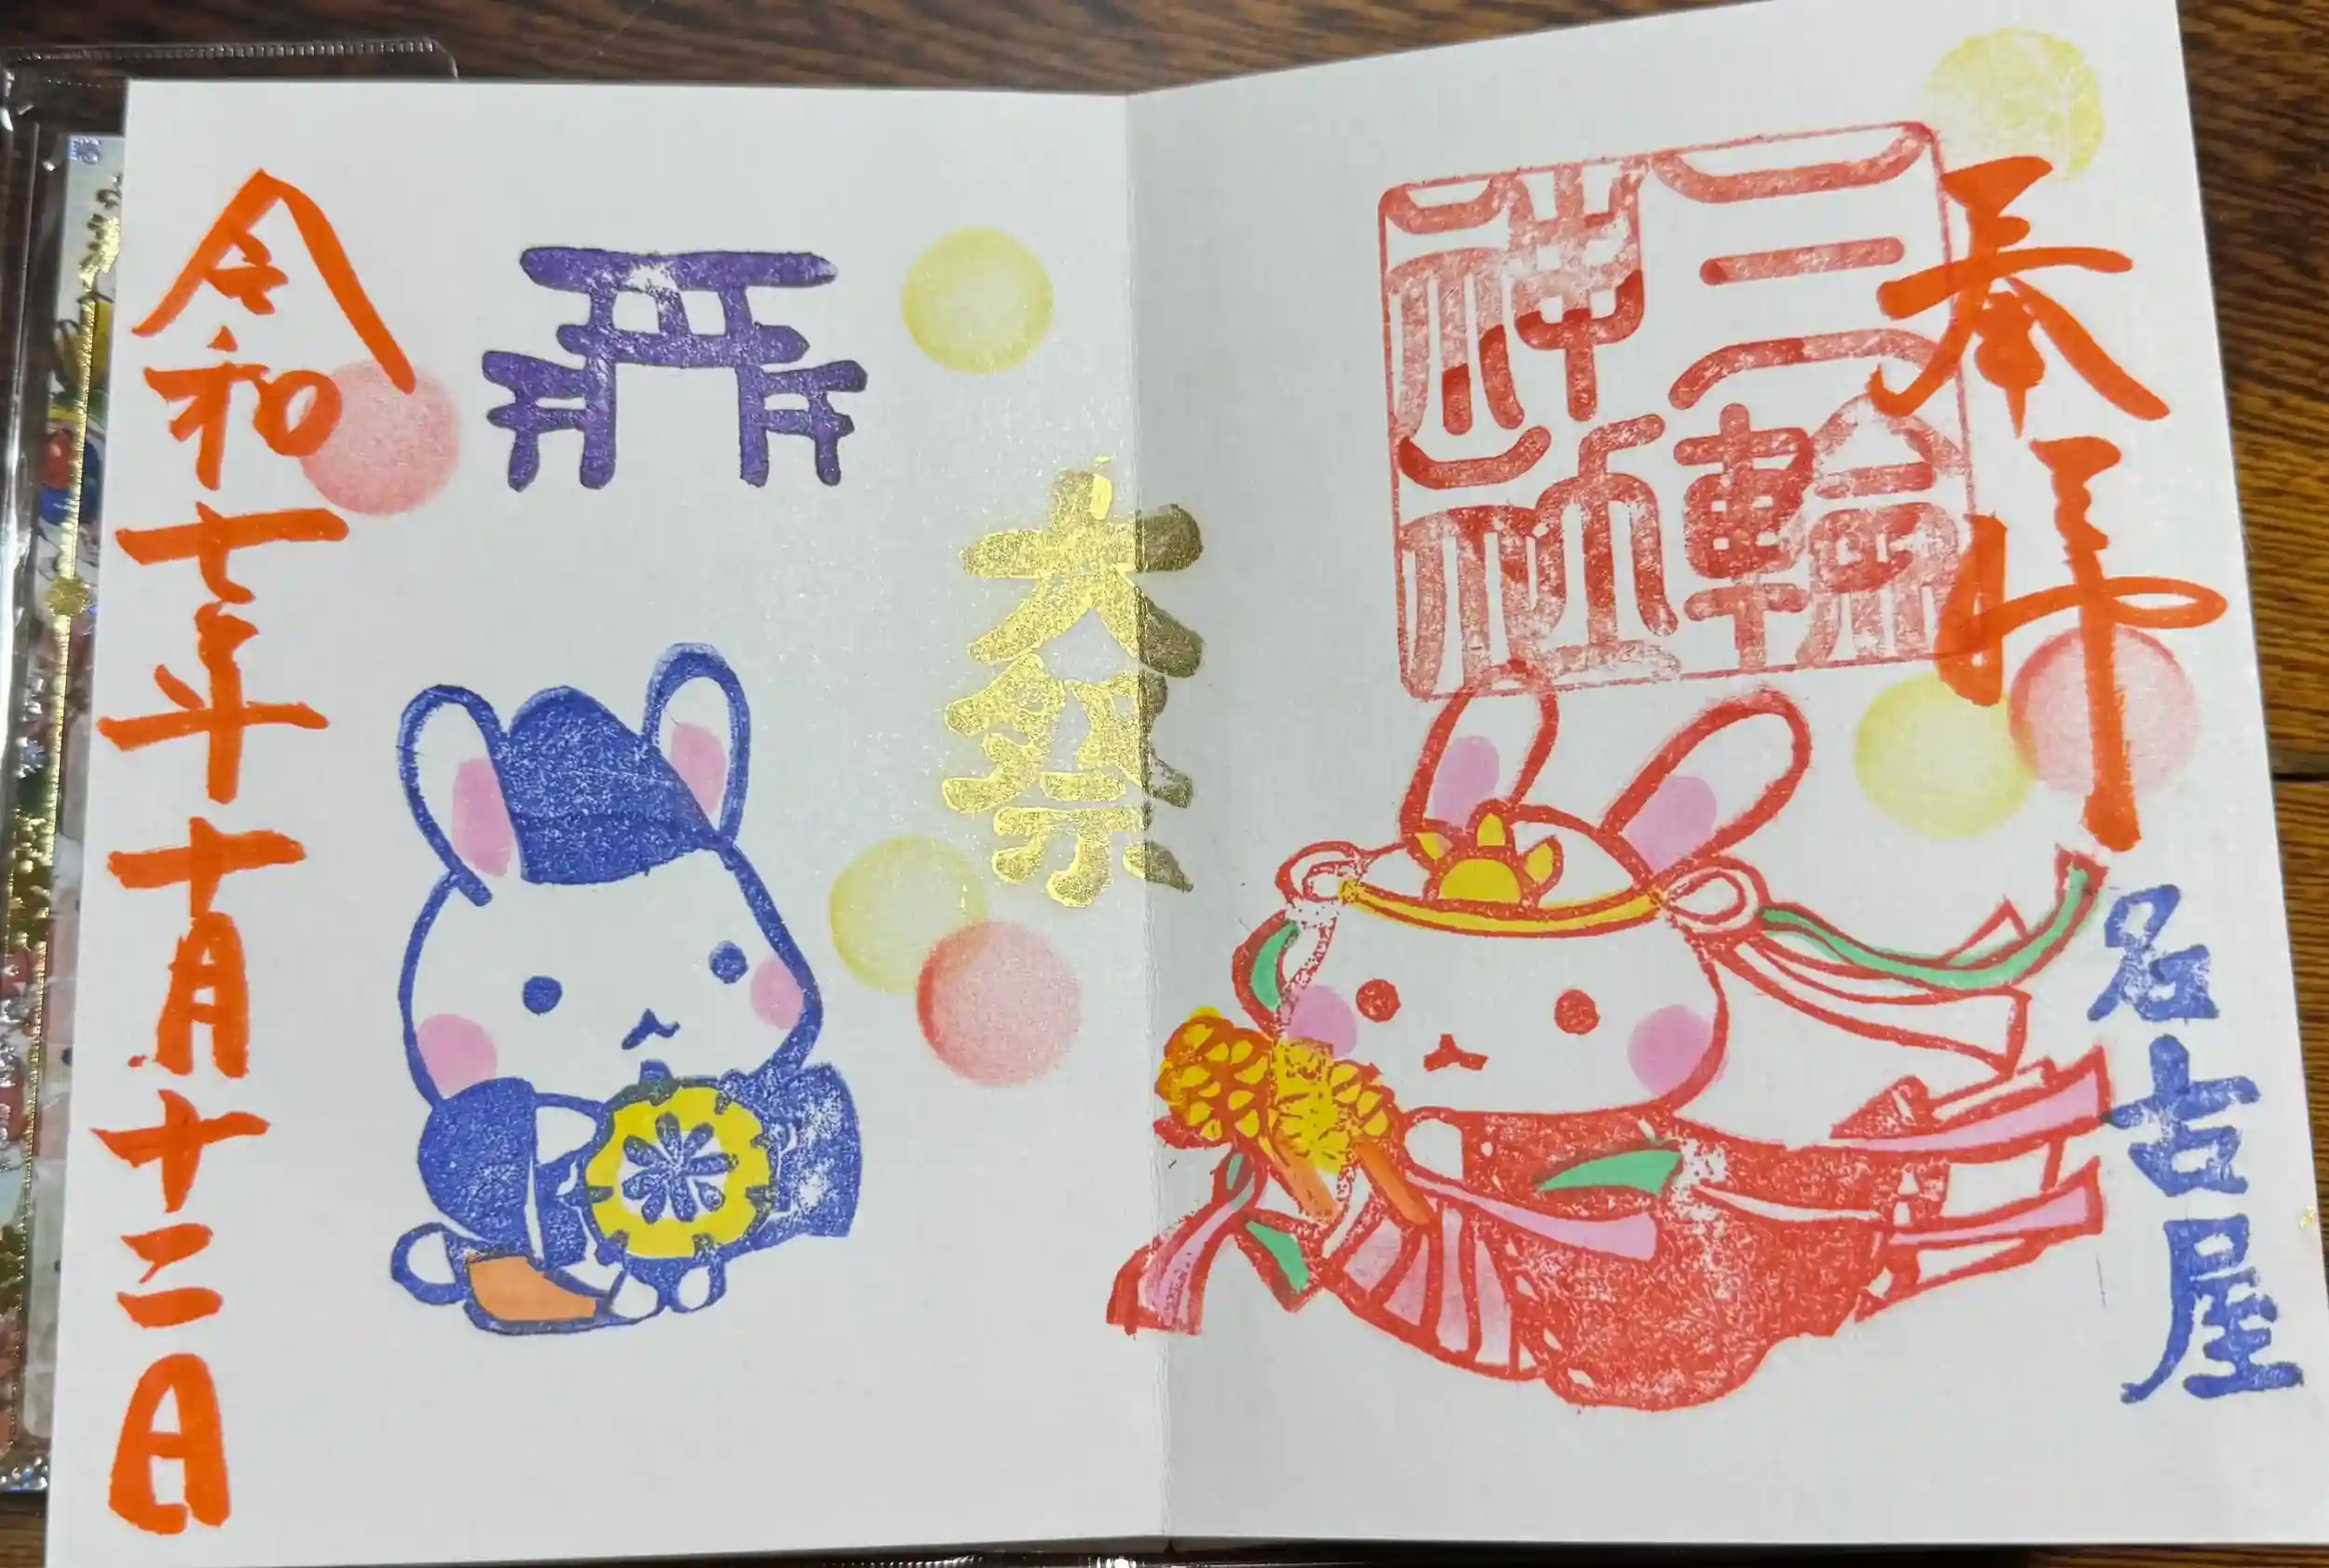 奉拝
三輪神社
名古屋
大祭
令和七年十月十二日